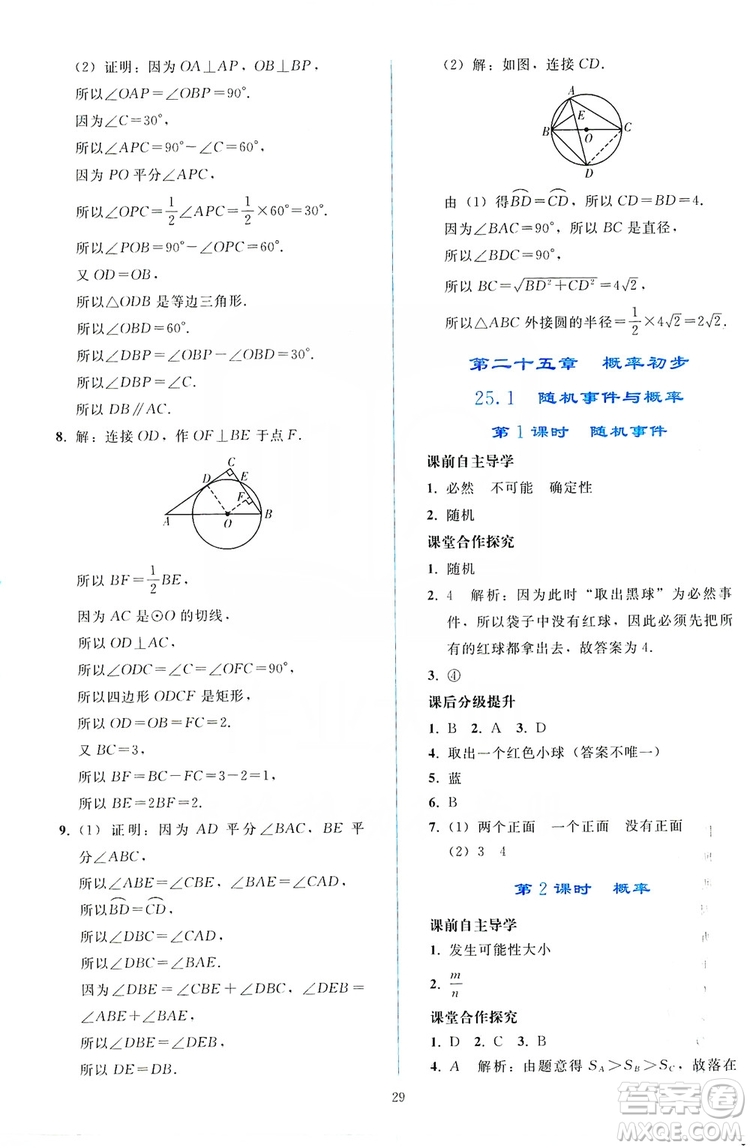 (2) 证明：因为 OA⊥AP，OB⊥BP，
所以∠OAP＝∠OBP＝90°.
因为∠C＝30°，
所以∠APC＝90°－∠C＝60°，
因为 PO 平分∠APC，
所以∠OPC＝1/2∠APC＝1/2×60°＝30°.
所以∠POB＝90°－∠OPC＝60°.
又 OD＝OB，
所以△ODB 是等边三角形.
所以∠OBD＝60°.
所以∠DBP＝∠OBP－∠OBD＝30°.
所以∠DBP＝∠C.
所以 DB∥AC.
8. 解：连接 OD，作 OF⊥BE 于点 F.
C
D
E
F
A
O
B
所以 BF＝1/2BE，
因为 AC 是⊙O 的切线，
所以 OD⊥AC.
所以∠ODC＝∠C＝∠OFC＝90°，
所以四边形 ODCF 是矩形，
所以 OD＝OB＝FC＝2.
又 BC＝3，
所以 BF＝BC－FC＝3－2＝1，
所以 BE＝2BF＝2.
9. (1) 证明：因为 AD 平分∠BAC，BE 平
分∠ABC，
所以∠ABE＝∠CBE，∠BAE＝∠CAD，
所以BD⌒＝CD⌒，
所以∠DBC＝∠CAD，
所以∠DBC＝∠BAE.
因为∠DBE＝∠CBE＋∠DBC，∠DEB＝
∠ABE＋∠BAE，
所以∠DBE＝∠DEB，
所以 DE＝DB.
(2) 解：如图，连接 CD.
A
E
B
O
C
D
由（1）得BD⌒＝CD⌒，所以 CD＝BD＝4.
因为∠BAC＝90°，所以 BC 是直径，
所以∠BDC＝90°，
所以 BC＝√(BD²＋CD²)＝4√2，
所以△ABC 外接圆的半径＝1/2×4√2＝2√2.
第二十五章 概率初步
25.1 随机事件与概率
第 1 课时 随机事件
课前自主导学
1. 必然 不可能 确定性
2. 随机
课堂合作探究
1. 随机
2. 4 解析：因为此时“取出黑球”为必然事
件，所以袋子中没有红球，因此必须先把所
有的红球都拿出去，故答案为 4.
3. ④
课后分级提升
1. B 2. A 3. D
4. 取出一个红色小球（答案不唯一）
5. 蓝
6. B
7. (1) 两个正面 一个正面 没有正面
(2) 3 4
第 2 课时 概率
课前自主导学
1. 发生可能性大小
2. m/n
课堂合作探究
1. D 2. C 3. C
4. A 解析：由题意得 S_A＞S_B＞S_C，故落在
29
答案圈
MXQE.COM